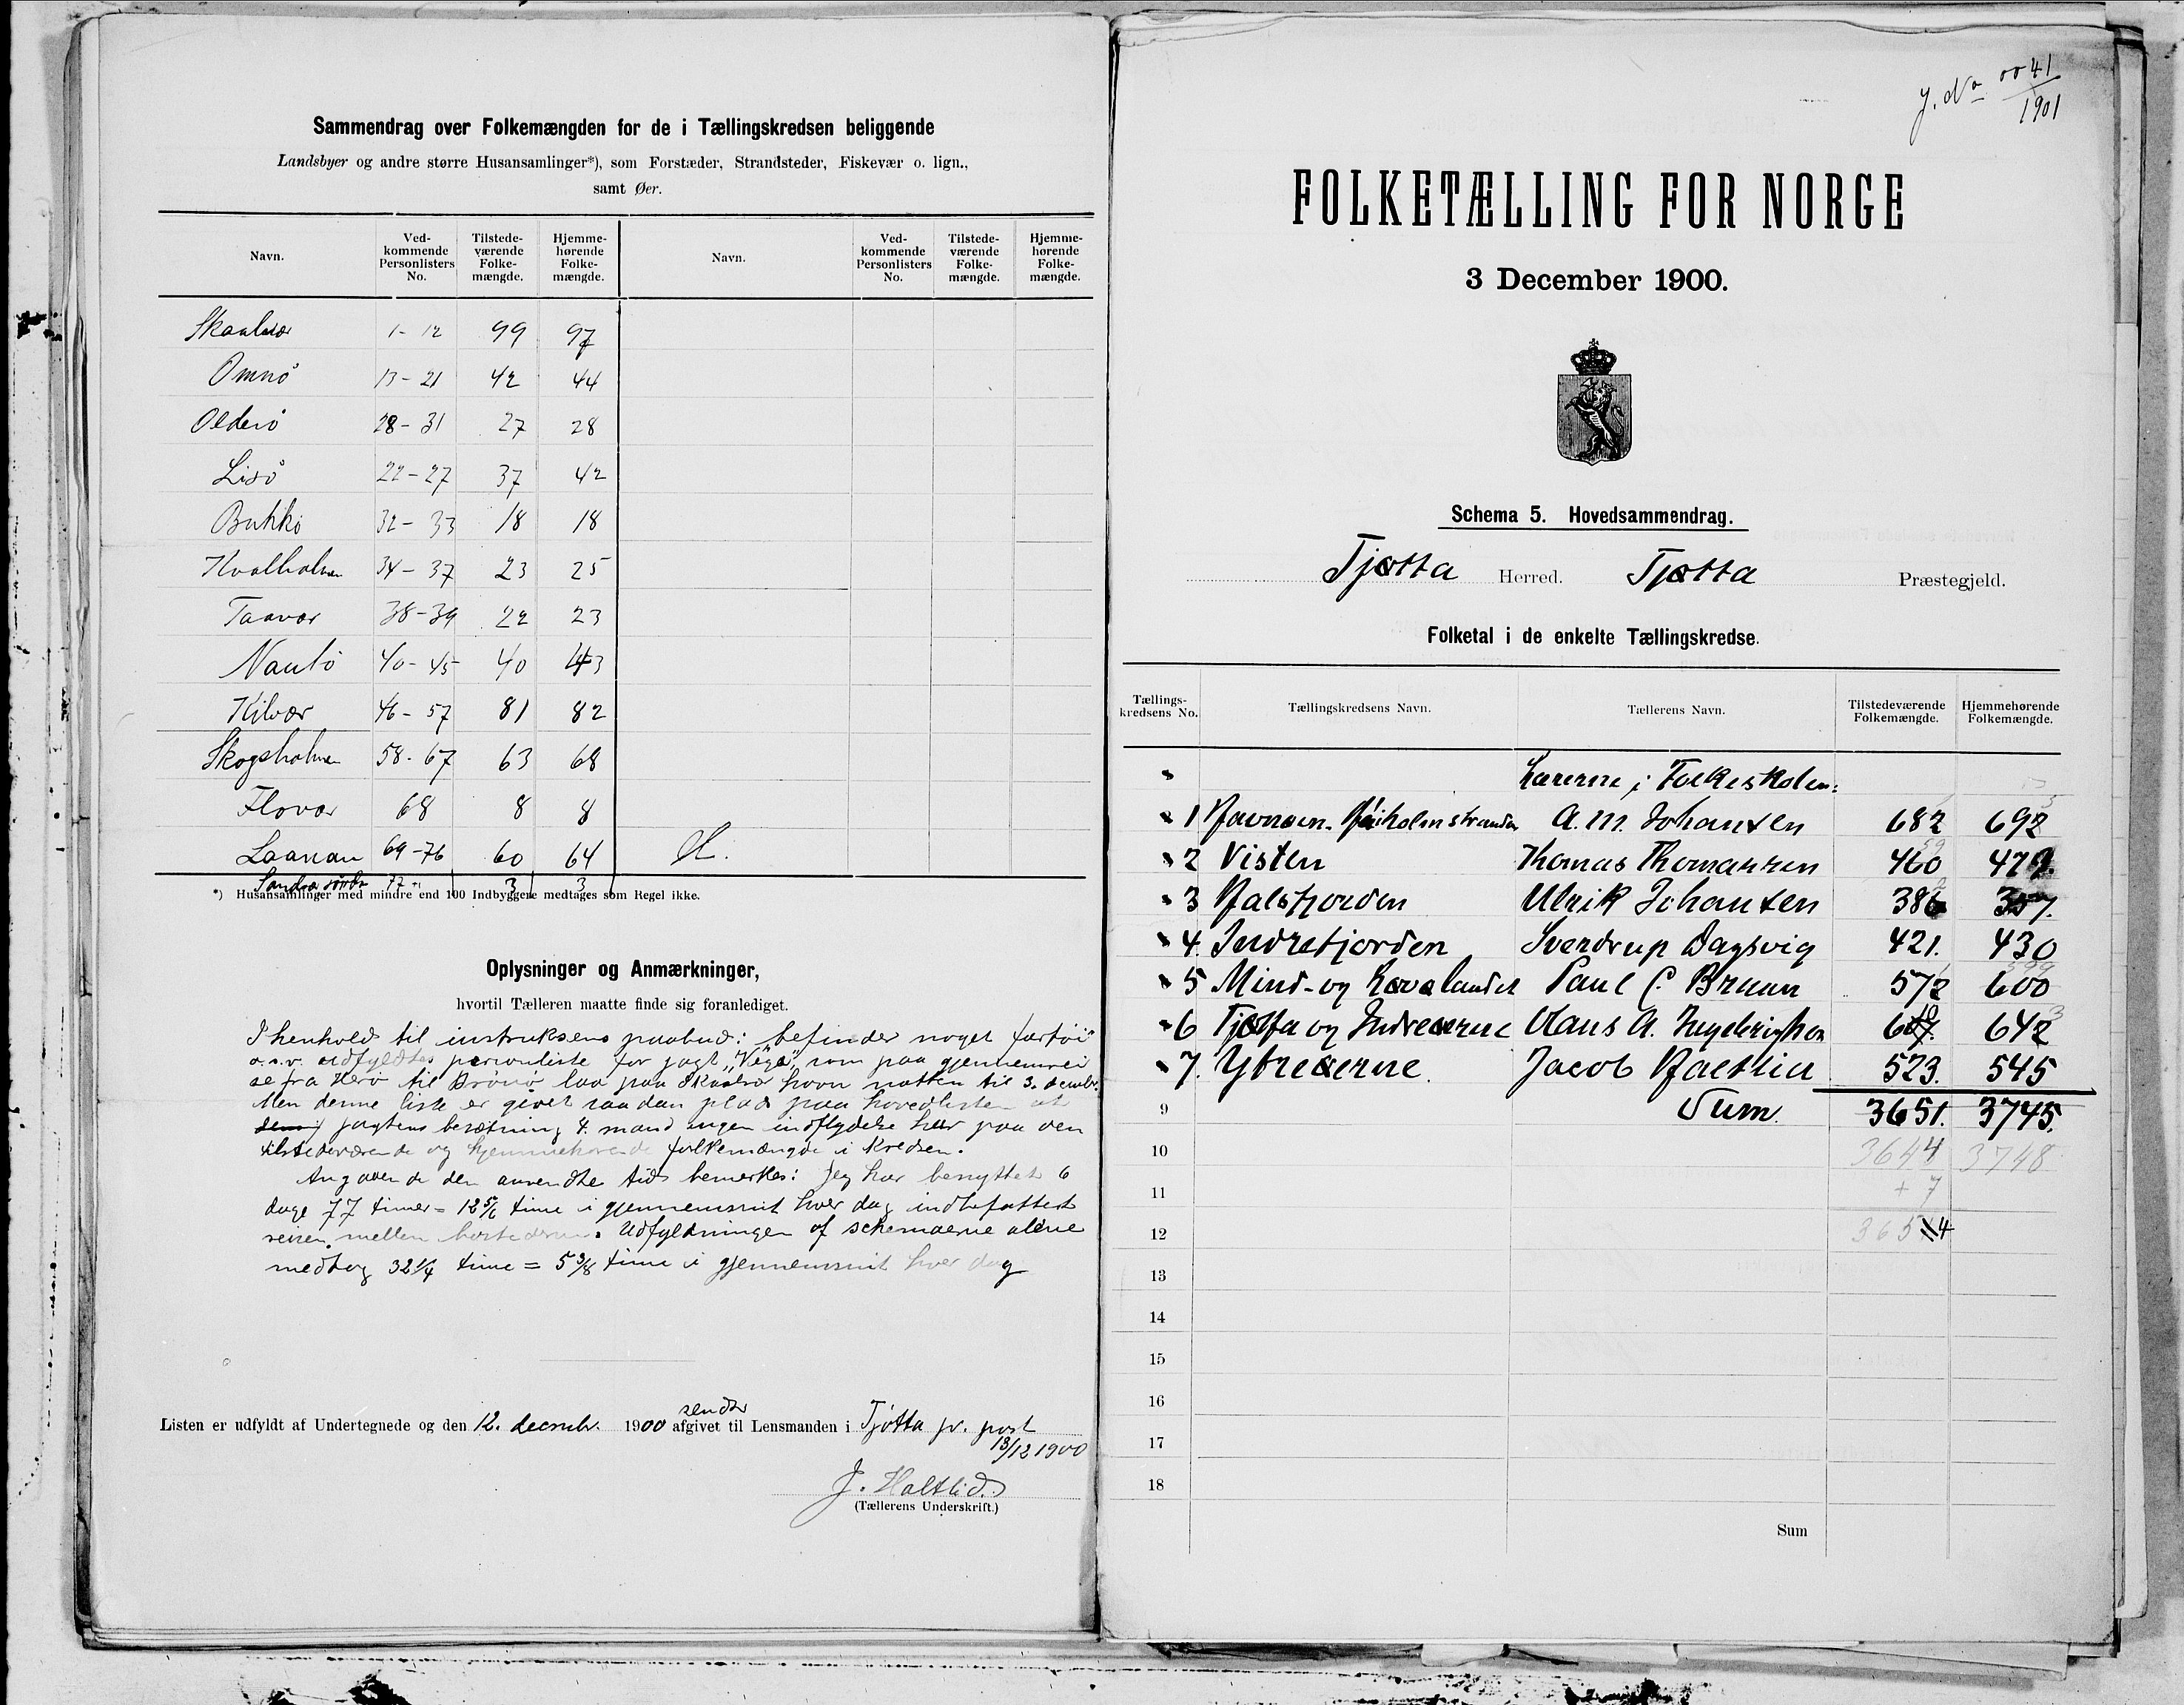 Sammendrag over Folkemængden for de i Tællingskredsen beliggende
Landsbyer og andre større Husansamlinger*), som Forstæder, Strandsteder, Fiskevær o. lign.,
samt Øer.
Navn. Ved-kommende Personlisters No. Tilstede-værende Folke-mængde. Hjemme-hørende Folke-mængde. Navn. Ved-kommende Personlisters No. Tilstede-værende Folke-mængde. Hjemme-hørende Folke-mængde.
Skaalvær 1-12 99 97
Omnö 13-21 42 44
Olderö 28-31 27 28
Lisö 22-27 37 42
Bukkö 32-33 18 18
Hvalholmen 34-37 23 25
Taavær 38-39 22 23
Nautö 40-45 40 43
Kilvær 46-57 81 82
Skogsholmen 58-67 63 68
Flovær 68 8 8
Laanan 69-76 60 64
77 3 3
*) Husansamlinger med mindre end 100 Indbyggere medtages som Regel ikke.
Oplysninger og Anmærkninger,
hvortil Tælleren maatte finde sig foranlediget.
I henhold til instruksens paabud: befinder noget fartöi
o.s.v. udfyldtes personliste for jagt "Vega", som paa gjennemrei
se fra Herö til Brönö laa paa Skaalvær havn natten til 3. decmbr.
Men denne liste er givet saadan plads paa hovedlisten at
jagtens besætning 4 mand ingen indflydelse har paa den
tilstedeværende og hjemmehørende folkemængde i kredsen.
Angaaende den anvendte tid bemerkes: Jeg har benyttet 6
dage 77 timer = 12 5/6 time i gjennemsnit hver dag indbefattet
reisen mellem bostederne. Udfyldningen af schemaerne alene
medtog 32 1/4 time = 5 3/8 time i gjennemsnit hver dag
sendt
Listen er udfyldt af Undertegnede og den 12. decmbr. 1900 afgivet til Lensmanden i Tjötta pr. post
13/12 1900
J. Haltlid.
(Tællerens Underskrift.)
J. No 0041
1901
FOLKETÆLLING FOR NORGE
3 December 1900.
Schema 5. Hovedsammendrag.
Tjøtta Herred. Tjøtta Præstegjeld.
Folketal i de enkelte Tællingskredse.
Tællings-kredsens No. Tællingskredsens Navn. Tællerens Navn. Tilstedeværende Folkemængde. Hjemmehørende Folkemængde.
Lærerne i Folkeskolen:
1 A. M. Johansen 682 692
2 Visten Thomas Thomassen 460
3 Halsfjorden Ulrik Johansen 386
4. Indrefjorden Sverdrup Dagsvig 421. 430
5 Mind- og Paul C. Bruun 572 600
6 Tjøtta og Indreøerne 642
7. Ytreøerne. Jacob Haltlid 523. 545
9 Sum 3651. 3745.
10 3644 3748
11 + 7
12
13
14
15
16
17
18
Sum